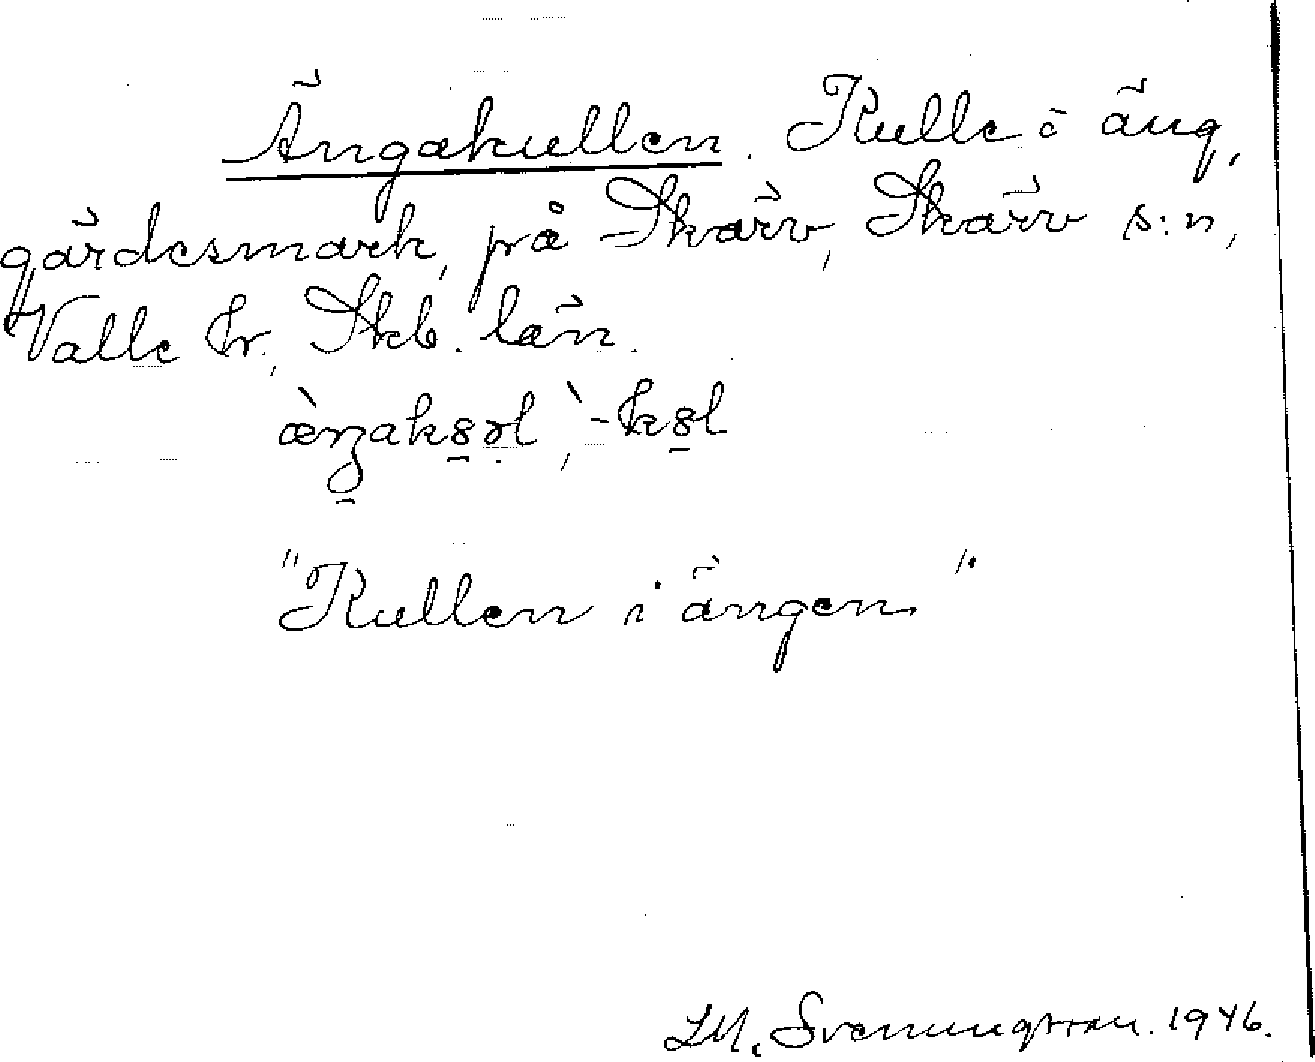 Ängakullen. Kulle i äng,
gärdesmark, på Skärv, Skärv s:n,
Valle hr, Skb. län.
"Kullen i ängen"
Svenungsson. 1946.